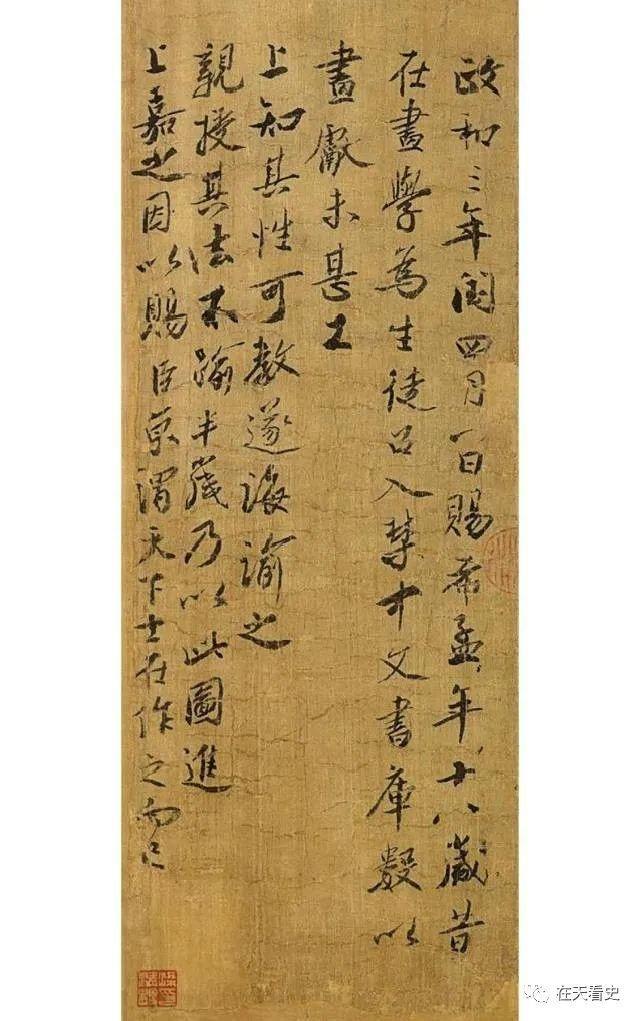 政和三年閏四月一日賜希孟年十八歲昔
在畫學為生徒召入禁中文書庫數以
畫獻未甚工
上知其性可教遂誨諭之
親授其法不踰半歲乃以此圖進
上嘉之因以賜臣京謂天下士在作之而已
在天看史